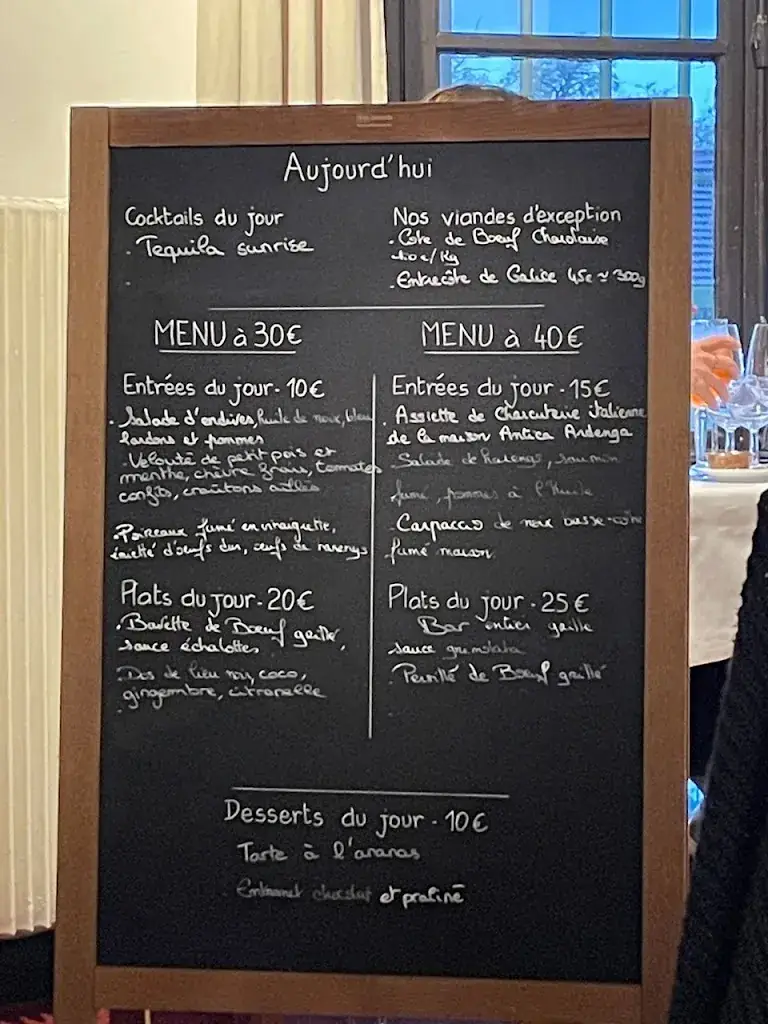 Aujourd'hui
Cocktails du jour
. Tequila sunrise
.
Nos viandes d'exception
. Côte de Boeuf Charolaise
110€/Kg
. Entrecôte de Galice 45€ ≃ 300g
MENU à 30€
Entrées du jour - 10€
. Salade d'endives, huile de noix, bleu
lardons et pommes
. Velouté de petit pois et
menthe, chèvre frais, tomates
confits, croûtons aillés
. Poireaux fumé en vinaigrette,
émietté d'oeufs dur, oeufs de harengs
Plats du jour - 20€
. Bavette de Boeuf grillé,
sauce échalottes
. Dos de lieu noir, coco,
gingembre, citronelle
.
MENU à 40€
Entrées du jour - 15€
. Assiette de Charcuterie italienne
de la maison Antica Ardenga
. Salade de harengs, saumon
fumé, pommes à l'huile
. Carpaccio de noix basse-côte
fumé maison
Plats du jour - 25€
Bar entier grillé
sauce
. Persillé de Boeuf grillé
.
Desserts du jour - 10€
Tarte à l'ananas
. Entremet chocolat et praliné